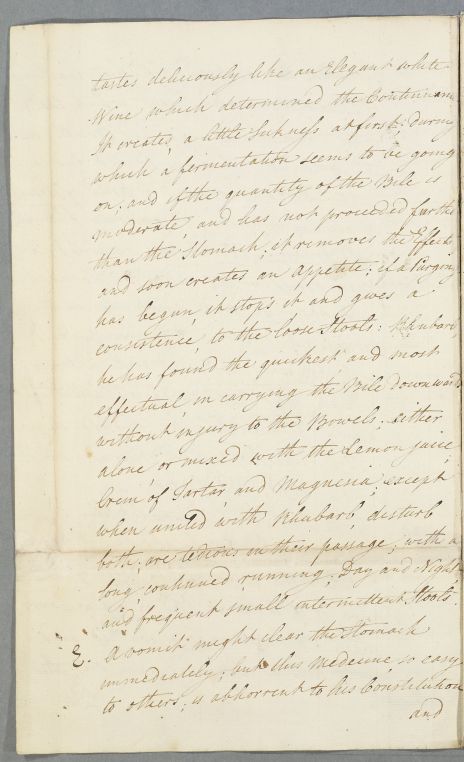 tastes deliciously like an Elegant white
Wine which determined the Continuan
It creates, a little Sickness at first; during
which a fermentation seems to be going
on; and if the quantity of the Bile is
moderate, and has not proceeded further
than the Stomach; it removes the Effects
and soon creates an appetite; if a Purging
has begun, it stops it and gives a
consistence, to the loose Stools: Rhubarb,
he has found the quickest and most
effectual, in carrying the Bile downwards
without injury to the Bowels. either
alone, or mixed with the Lemon juice
Crem, of Tartar, and Magnesia, except
when united, with Rhubarb, disturb
both, are tedious in their passage, with a
long, continued, running, Day and Night
and frequent small intermittent Stools.
E. A vomit might clear the Stomach
immediately; but this Medecine, so easy
to others, is abhorrent to his Constitution
and